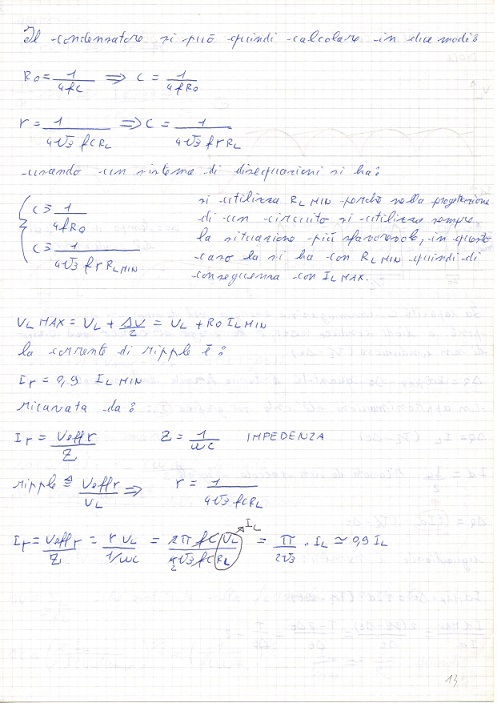 Il condensatore si può quindi calcolare in due modi:
R0 = 1/4fC ⇒ C = 1/4fR0
r = 1/4√3 fCRL ⇒ C = 1/4√3 f r RL
usando un sistema di disequazioni si ha:
{ C ≥ 1/4fR0
C ≥ 1/4√3 f r RL MIN
si utilizza RL MIN perché nella progettazione
di un circuito si utilizza sempre
la situazione più sfavorevole, in questo
caso la si ha con RL MIN quindi di
conseguenza con IL MAX.
VL MAX = VL + ΔV/2 = VL + R0 IL MIN
la corrente di ripple è:
Ir = 0,9 IL MIN
ricavata da:
Ir = Veff r/Z Z = 1/ωC IMPEDENZA
ripple ≙ Veff r/VL ⇒ r = 1/4√3 fCRL
Ir = Veff r/Z = r VL/1/ωC = 2π fC VL/4√3 fC RL = π/2√3 · IL ≃ 0,9 IL
IL
13